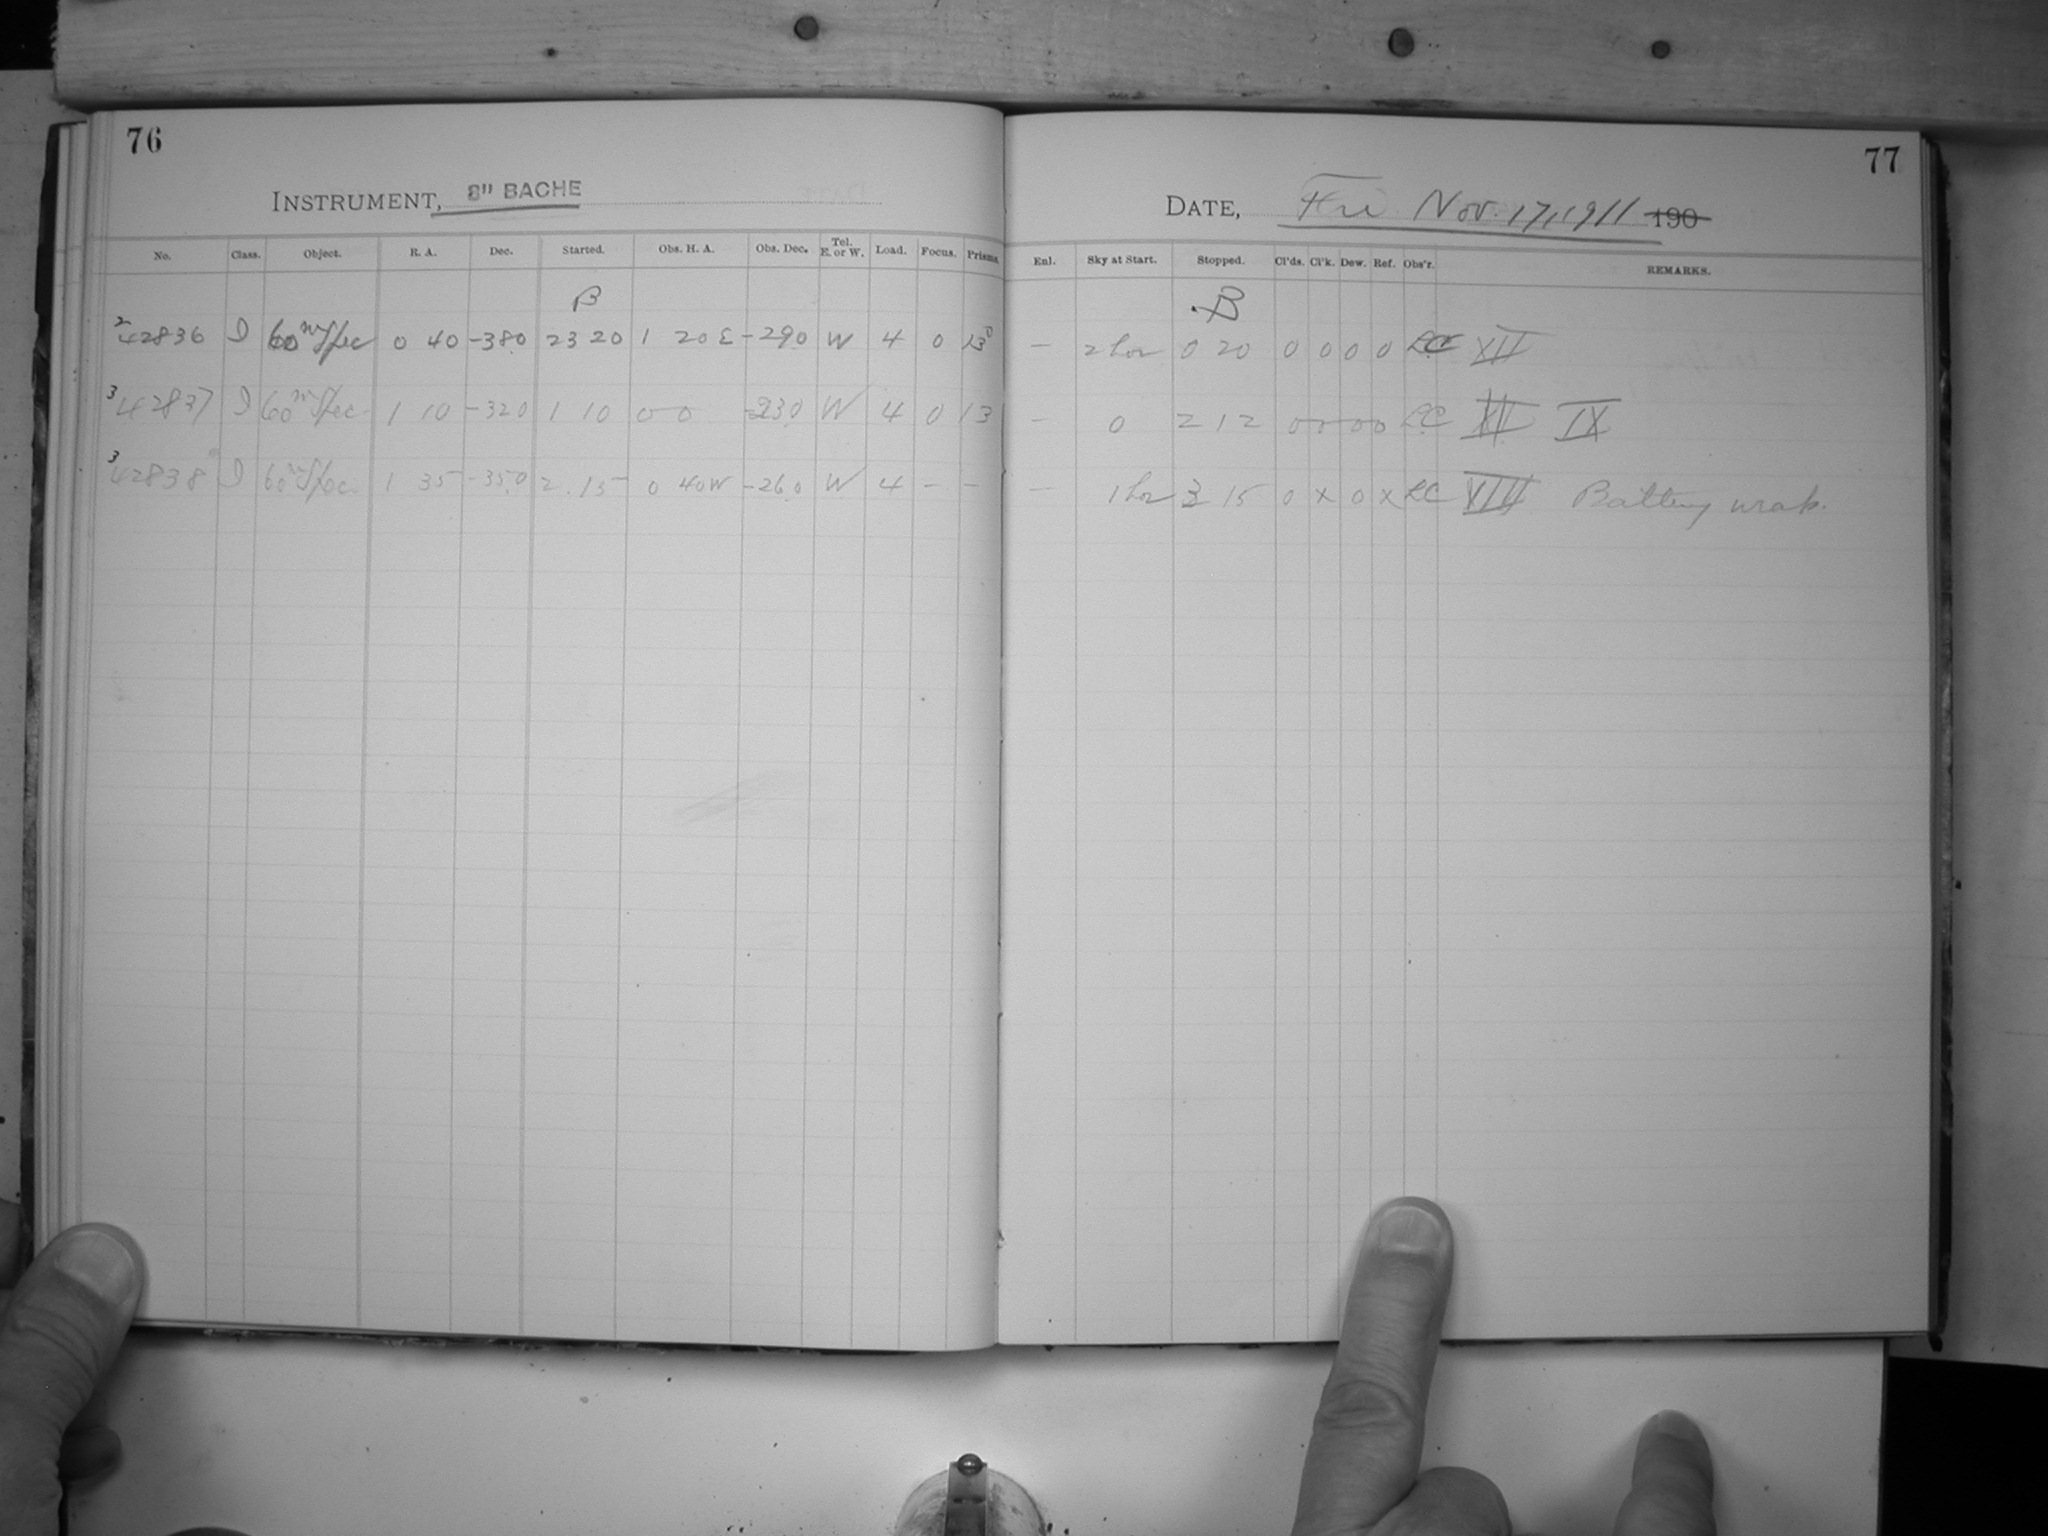 76
INSTRUMENT, 8" BACHE
No. Class. Object. R. A. Dec. Started. Obs. H. A. Obs. Dec. Tel. E. or W. Load. Focus. Prisms.
B
2 42836 I 60m Spec 0 40 -38.0 23 20 1 20 E -29.0 W 4 0 13°
3 42837 I 60m Spec 1 10 -32.0 1 10 0 0 -23.0 W 4 0 13
3 42838 I 60m Spec 1 35 -35.0 2 15 0 40W -26.0 W 4 - -
77
DATE, Fri Nov. 17, 1911 190
Enl. Sky at Start. Stopped. Cl'ds. Cl'k. Dew. Ref. Obs'r. REMARKS.
B
- 2 hor 0 20 0 0 0 0 XII
- 0 2 12 0 0 0 0 LC IX
- 1 hor 3 15 0 x 0 x LC XIII Battery weak.